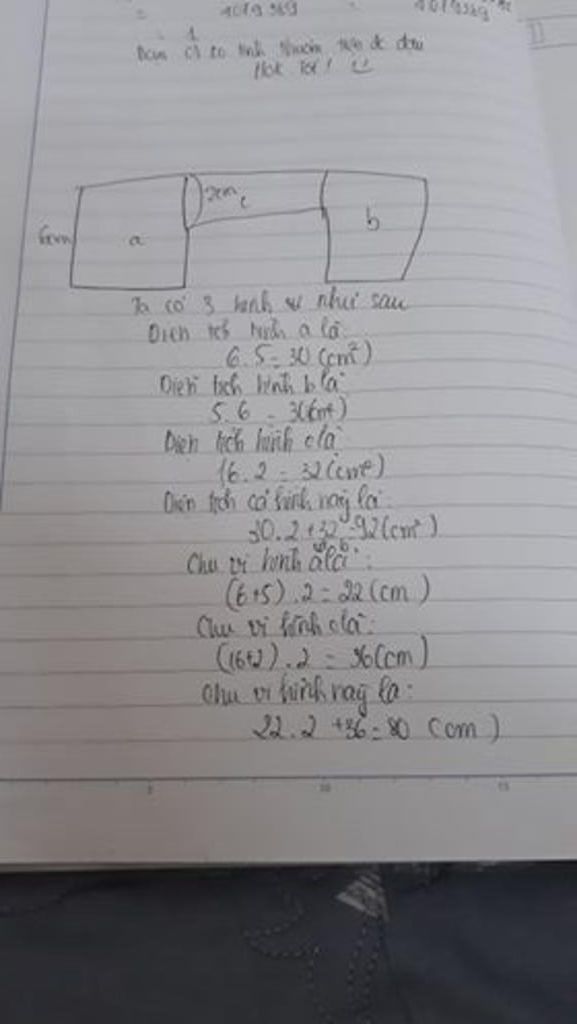 = 1019989 . 1019989
Hok tot! :)
2cm c
6cm a b
Ta có 3 hình vẽ như sau
Diện tích hình a là
6.5=30(cm²)
Diện tích hình b là
5.6 = 30(cm²)
Diện tích hình c là
16.2 = 32(cm²)
Diện tích cả hình này là:
30.2+32=92(cm²)
Chu vi hình a và b là:
(6+5).2=22(cm)
Chu vi hình c là:
(16+2).2 = 36(cm)
Chu vi hình này là:
22.2+36=80 (cm)